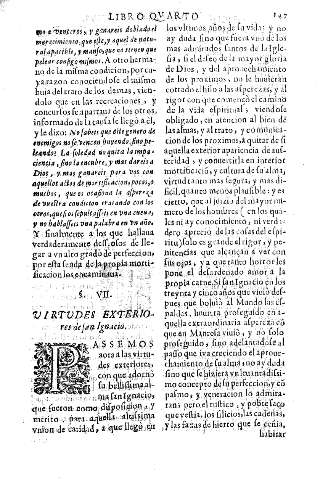 LIBRO QVARTO
147
mo e venceros, y ganareis doblado el
merecimiento, que esse, y aquel de natu-
ral apacible, y manso que no tienen que
pelear consigo mismos. A otro herma-
no de la misma condicion, por cu-
ya razon conociendose el mismo
huìa del trato de los demas, vien-
dolo que en las recreaciones, y
concursos se apartaua de los otros,
informado de la causa se llegò a èl,
y le dixo: No sabeis que este genero de
enemigos no se vencen huyendo, sino pe-
leando? La soledad no quita la impa-
ciencia, sino la encubre, y mas dareis a
Dios, y mas ganareis para vos con
aquellos actos de mortificacion, pocos, ò
muchos, que os ocasiona la aspereza
de vuestra condicion tratando con los
otros, que si os sepultasseis en vna cueua,
y no hablasseis vna palabra en vn año.
Y finalmente a los que hallaua
verdaderamente desseosos de lle-
gar a vn alto grado de perfeccion,
por esta senda de la propia morti-
ficacion los encaminaua.
§. VII.
VIRTUDES EXTERIO-
res de san Ignacio.
PASSEMOS
aora a las virtu-
des exteriores,
con que adornò
su bellissima al-
ma san Ignacio,
que fueron como disposicion, y
merito, para aquella altissima
vnion de caridad, a que llegò en
los vltimos años de su vida: y no
ay duda sino que fue vno de los
mas admirados santos de la Igle-
sia, si el desseo de la mayor gloria
de Dios, y del aprouechamiento
de los proximos, no le huuieran
cortado el hilo a las asperezas, y al
rigor con que començò el camino
de la vida espiritual, viendose
obligado, en atencion al bien
de las almas, y al trato, y comunica-
cion de los proximos, a quitar de sì
aquella exterior apariencia de aus-
teridad, y conuertirla en interior
mortificacion, y cultura de su alma,
virtud tanto mas segura, y mas di-
ficil, quanto menos plausible: y es
cierto, que al juizio del mayor nu-
mero de los hombres (en los qua-
les ni ay conocimiento, ni verda-
dero aprecio de las cosas del espi-
ritu) solo es grande el rigor, y pe-
nitencias que alcançan a ver con
sus ojos, y a quantos horror les
pone el desordenado amor a la
propia carne. Si san Ignacio en los
treynta y cinco años que viuiò des-
pues que boluiò al Mundo las es-
paldas, huuiera proseguido en a-
quella extraordinaria aspereza con
que en Manresa viuiò, y no solo
proseguido, sino adelantadose al
passo que iva creciendo el aproue-
chamiento de su alma, no ay duda
sino que se hiziera vn leuantadissi-
mo concepto de su perfeccion, y con
pasmo, y veneracion lo admira-
ran: pero el rustico, y pobre saco
que vestia, los silicios, las cadenas,
y las faxas de hierro que se ceñia,
habitar